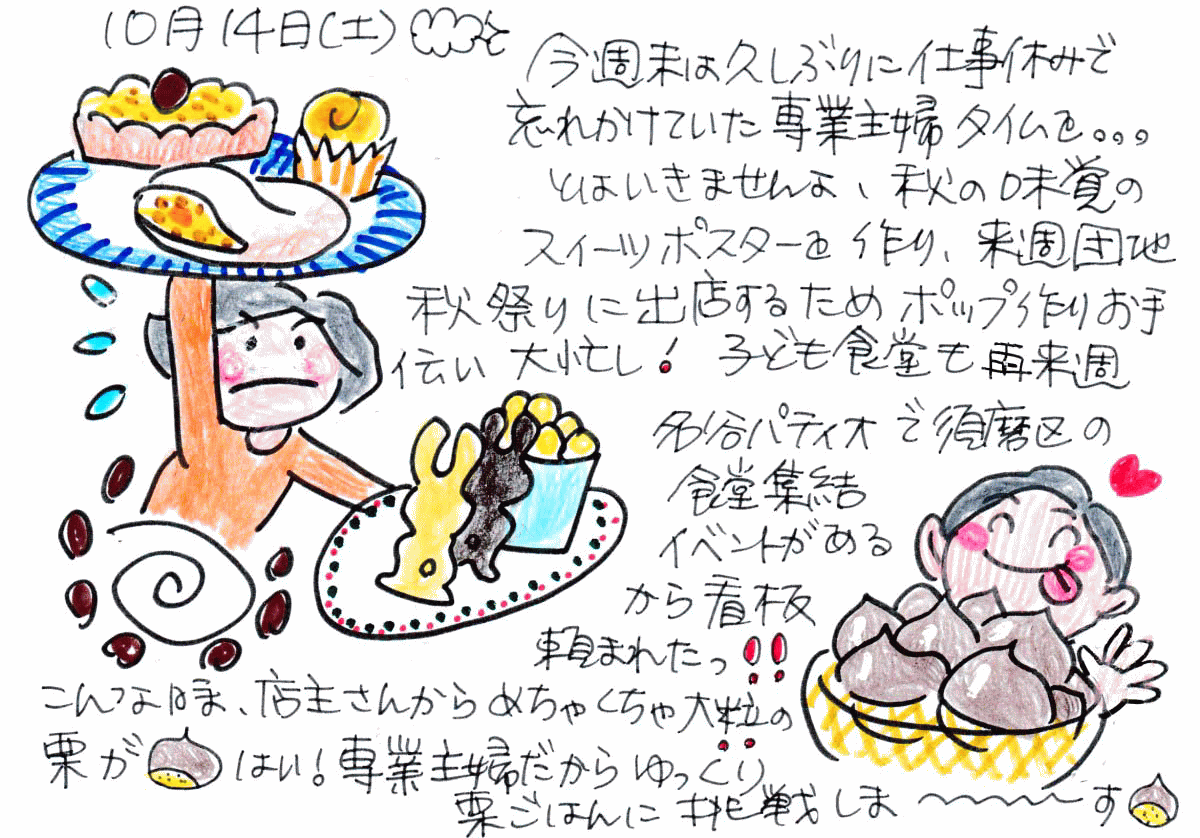 10月14日(土)
今週末は久しぶりに仕事休みで
忘れかけていた専業主婦タイムを。。。
とはいきませんよ、秋の味覚の
スイーツポスターを作り、来週団地
秋祭りに出店するためポップ作りお手
伝い大忙し! 子ども食堂も再来週
名谷パティオで須磨区の
食堂集結
イベントがある
から看板
頼まれたっ!!
こんな時、店主さんからめちゃくちゃ大粒の
栗が はい!専業主婦だからゆっくり
栗ごはんに挑戦しま〜〜〜す